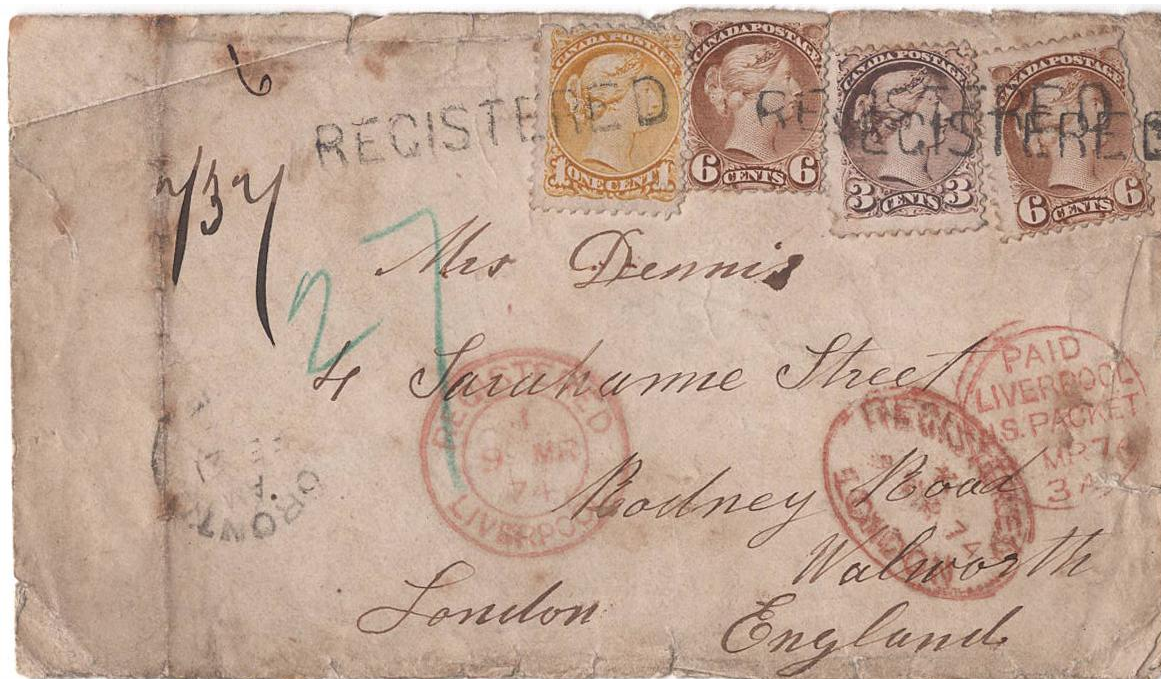 6
REGISTERED REGISTERED REGISTERED
CANADA POSTAGE
1 ONE CENT 1
CANADA POSTAGE
6 CENTS 6
CANADA POSTAGE
3 CENTS 3
CANADA POSTAGE
6 CENTS 6
27
Mrs Dennis
4 Sarahanne Street
Rodney Road
Walworth
London
England
REGISTERED
9 MR
74
LIVERPOOL
PAID
LIVERPOOL
U.S. PACKET
3 A
REGISTERED
74